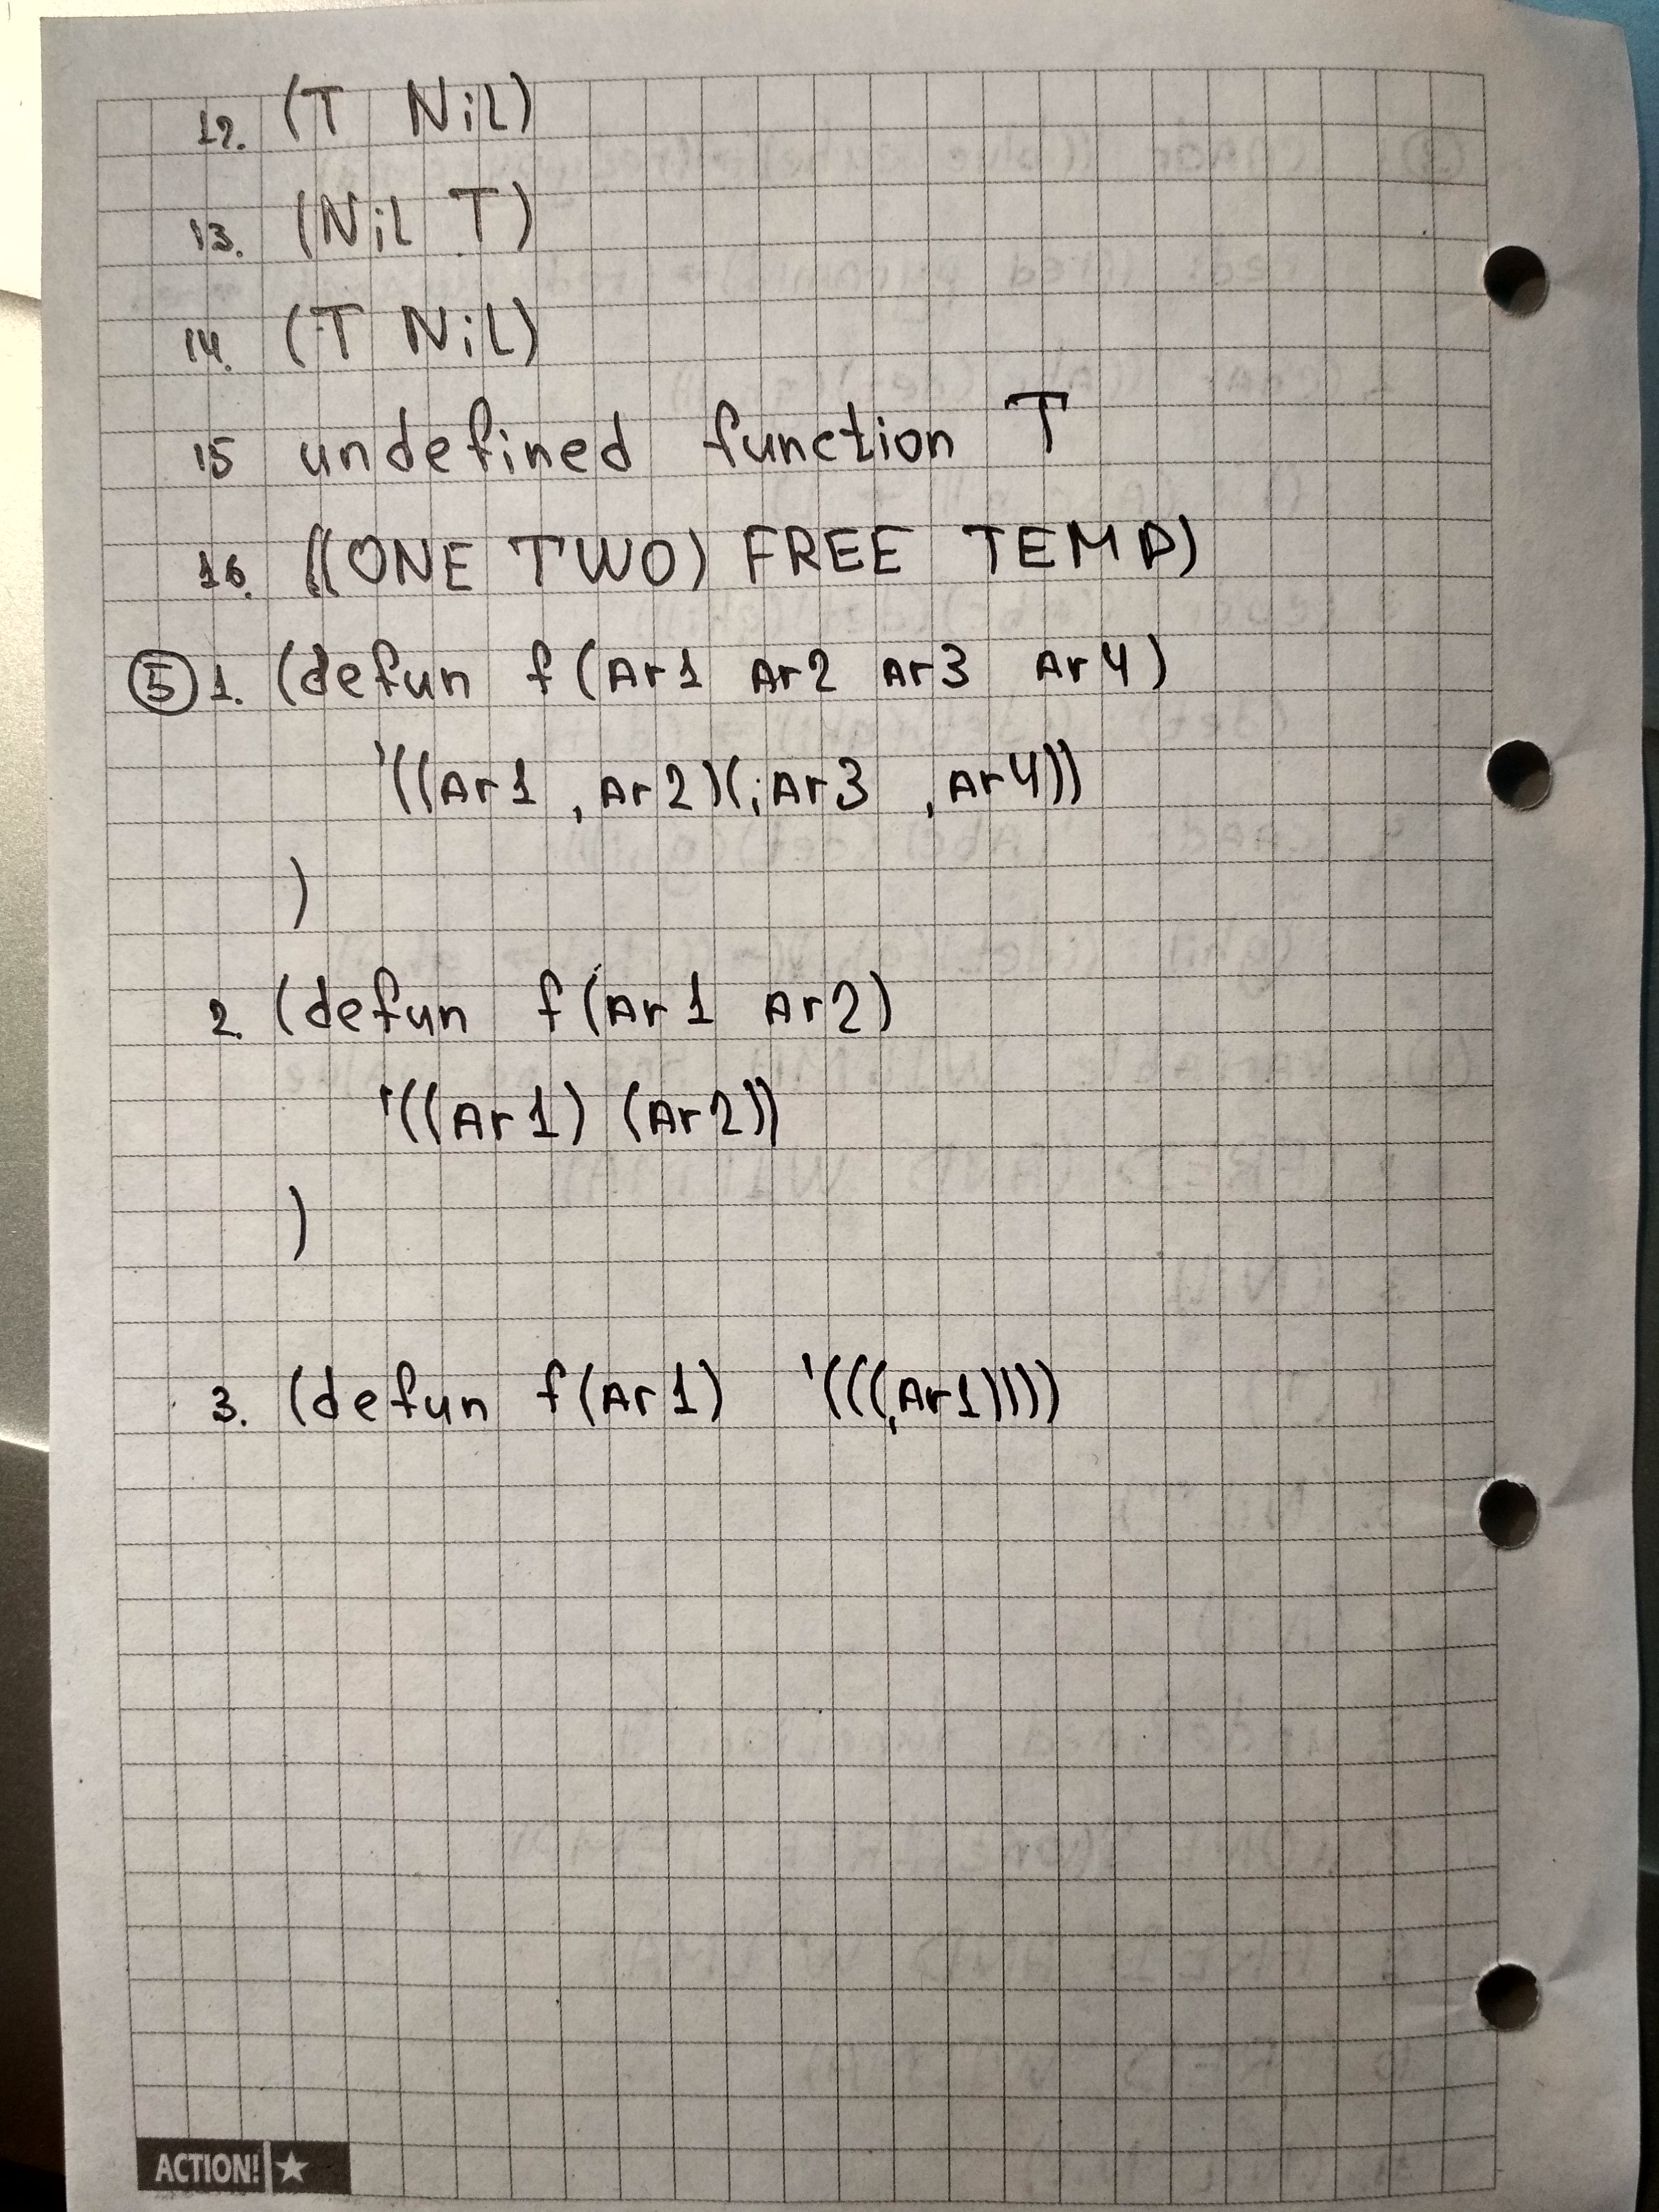 12. (T NiL)
13. (NiL T)
14. (T NiL)
15 undefined function T
16. ((ONE TWO) FREE TEMP)
⑤ 1. (defun f(Ar1 Ar2 Ar3 Ar4)
'((Ar1 ,Ar2)(,Ar3 ,Ar4))
)
2. (defun f(Ar1 Ar2)
'((Ar1) (Ar2))
)
3. (defun f(Ar1) '(((,Ar1))))
ACTION!